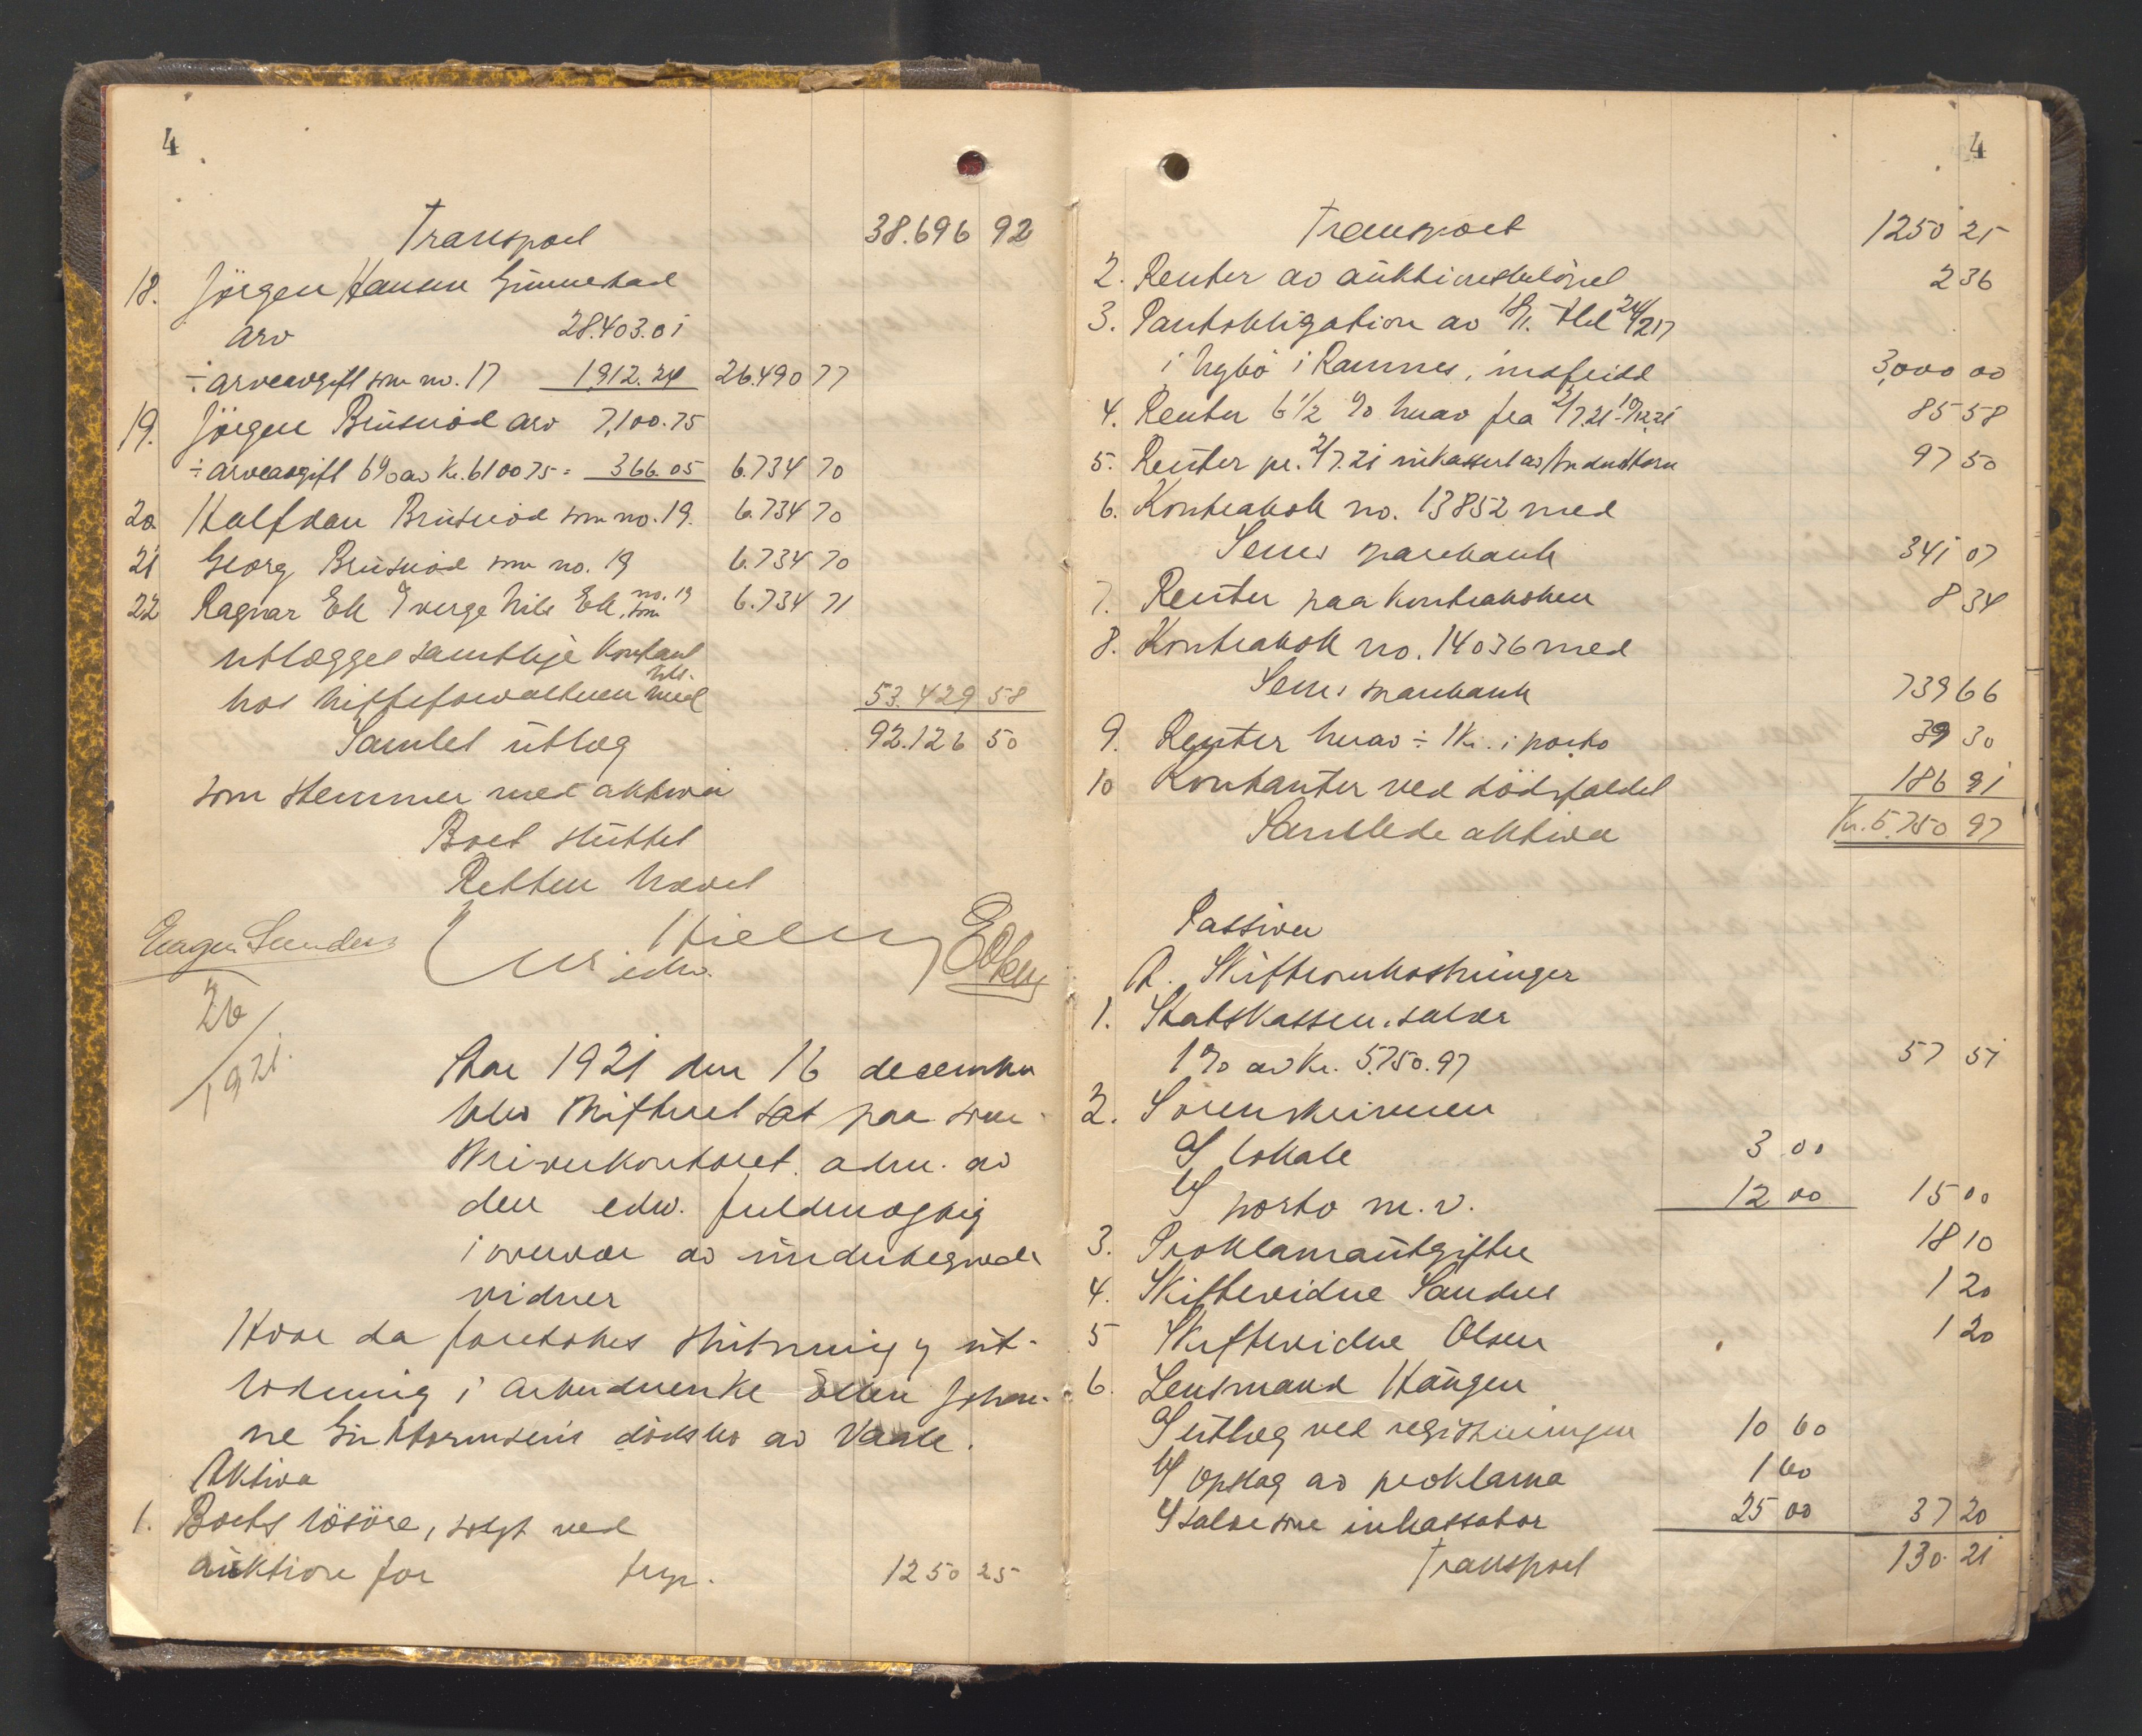 4
Transport 38.696 92
18. Jörgen Hansen Gunnestad
arv 28.403.01
÷ arveavgift som no. 17 1912.24 26.490 77
19. Jörgen Brusnöd arv 7,100.75
÷ arveavgift 6% av Kr. 6100 75 = 366.05 6.734 70
20 Halfdan Brusnöd som no. 19. 6.734 70
21 Georg Brusnöd som no. 19 6.734 70
22 Ragnar Ek verge Nils Ek, som no. 19 6.734 71
utlægges samtlige kontant
hos skifteforvalteren med 53.429 58
Samlet utlæg 92.126 50
som stemmer med aktiva
Boet sluttet
Retten hævet
edw.
26/1921.
Aar 1921 den 16 december
blev skifteret sat paa soren-
skriverkontoret. adm. av
den edw. fuldmægtig
i overvær av undertegnede
vidner
Hvor da foretokes slutning og ut-
lodning i arbeiderenke Ellen Johan-
ne Guttormsens dödsbo av Vaale.
Aktiva
1. Boets lösöre, solgt ved
auktion for trsp. 1250 25
4
Transport 1250 25
2. Renter av auktionsbelöpet 2 36
3. Pantobligation av
i Nygbö i Ramnes, indfridd 3,000 00
4. Renter 6 1/2 % herav fra 2/7.21 - 10/12.21 85 58
5. Renter pr. 2/7.21 inkassert av 97 50
6. Kontrabok no. 13852 med
Sems sparebank 341 07
7. Renter paa kontraboken 8 34
8. Kontrabok no. 14036 med
Sems sparebank 739 66
9. Renter herav ÷ 1 Kr. i porto 39 30
10 Kontanter ved dödsfaldet 186 91
Samlede aktiva Kr. 5.750 97
Passiva
A. Skifteomkostninger
1. Statskassen, salær
1% av Kr. 5.750.97 57 51
2. Sorenskriveren
a) lokale 3 00
b) porto m.v. 12 00 15 00
3. Proklamautgifter 18 10
4. Skiftevidne Sander 1 20
5 Skiftevidne Olsen 1 20
6. Lensmand Haugen
a) utlæg ved registreringen 10 60
b) opslag av proklama 1 60
c) salær som inkassator 25 00 37 20
Transport 130. 21